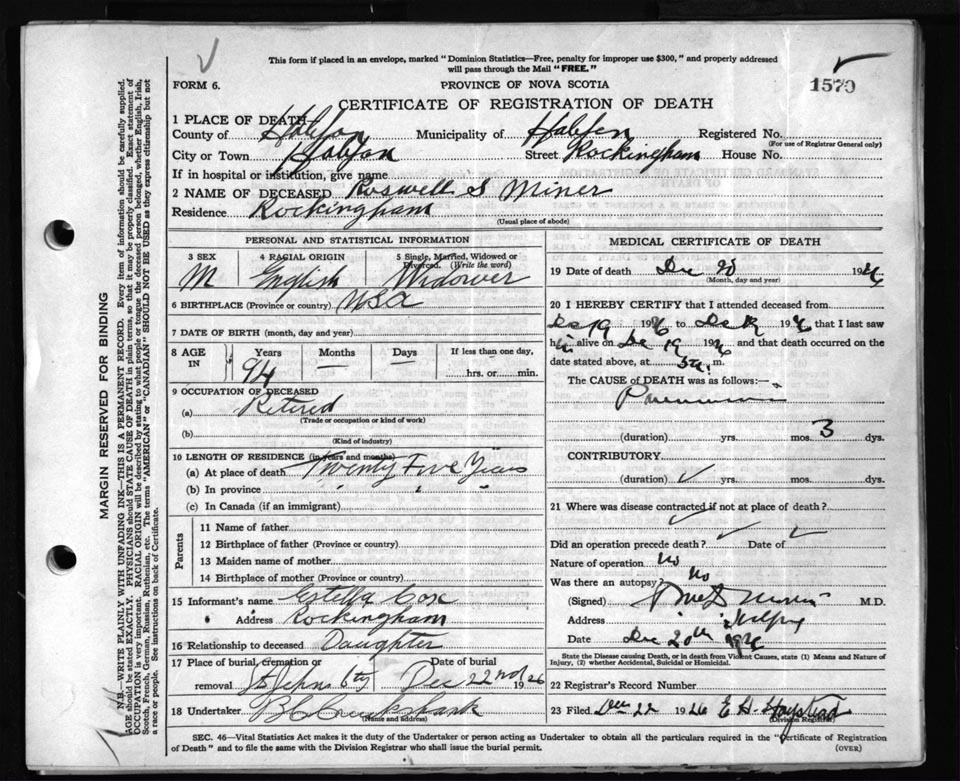 This form if placed in an envelope, marked "Dominion Statistics—Free, penalty for improper use $300," and properly addressed
will pass through the Mail "FREE."
FORM 6.
PROVINCE OF NOVA SCOTIA
1570
CERTIFICATE OF REGISTRATION OF DEATH
1 PLACE OF DEATH
County of Halifax Municipality of Halifax Registered No.
(For use of Registrar General only)
City or Town Halifax Street Rockingham House No.
If in hospital or institution, give name
2 NAME OF DECEASED Roswell S Miner
Residence Rockingham
(Usual place of abode)
PERSONAL AND STATISTICAL INFORMATION
3 SEX 4 RACIAL ORIGIN 5 Single, Married, Widowed or
Divorced. (Write the word)
M English Widower
6 BIRTHPLACE (Province or country) USA
7 DATE OF BIRTH (month, day and year)
8 AGE IN Years Months Days If less than one day,
94 — — hrs. or min.
9 OCCUPATION OF DECEASED
(a) Retired
(Trade or occupation or kind of work)
(b)
(Kind of industry)
10 LENGTH OF RESIDENCE (in years and months)
(a) At place of death Twenty Five Years
(b) In province " " "
(c) In Canada (if an immigrant)
Parents
11 Name of father
12 Birthplace of father (Province or country)
13 Maiden name of mother
14 Birthplace of mother (Province or country)
15 Informant's name Estella Cox
Address Rockingham
16 Relationship to deceased Daughter
17 Place of burial, cremation or Date of burial
removal St Johns Cty Dec 22nd 1926
18 Undertaker
(Name and address)
MEDICAL CERTIFICATE OF DEATH
19 Date of death Dec 20 1926
(Month, day and year)
20 I HEREBY CERTIFY that I attended deceased from
Dec 19 1926 to Dec 19 1926 that I last saw
him alive on Dec 19 1926 and that death occurred on the
date stated above, at m.
The CAUSE OF DEATH was as follows:—
Pneumonia
(duration) yrs. mos. 3 dys.
CONTRIBUTORY
(duration) yrs. mos. dys.
21 Where was disease contracted if not at place of death?
Did an operation precede death? Date of
Nature of operation no
Was there an autopsy no
(Signed) M.D.
Address
Date Dec 20th 1926
State the Disease causing Death, or in death from Violent Causes, state (1) Means and Nature of
Injury, (2) whether Accidental, Suicidal or Homicidal.
22 Registrar's Record Number
23 Filed Dec 22 1926 E H
(Division Registrar)
SEC. 46—Vital Statistics Act makes it the duty of the Undertaker or person acting as Undertaker to obtain all the particulars required in the "Certificate of Registration
of Death" and to file the same with the Division Registrar who shall issue the burial permit.
(OVER)
MARGIN RESERVED FOR BINDING
N.B.—WRITE PLAINLY WITH UNFADING INK—THIS IS A PERMANENT RECORD. Every item of information should be carefully supplied.
AGE should be stated EXACTLY. PHYSICIANS should STATE CAUSE OF DEATH in plain terms, so that it may be properly classified. Exact statement of
OCCUPATION is very important. RACIAL ORIGIN will be described by stating to what people or tongue the deceased person belonged, whether English, Irish,
Scotch, French, German, Russian, Ruthenian, etc. The terms "AMERICAN" or "CANADIAN" SHOULD NOT BE USED as they express citizenship but not
a race or people. See instructions on back of Certificate.